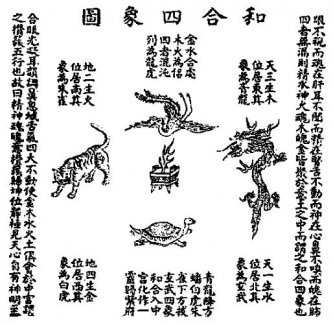 和合四象圖
眼不視而魂在肝耳不聞而精在腎舌不動而神在心鼻不嗅而魄在肺
四者無漏則精水神火魂木魄金皆聚於意土之中而謂之和合四象也
天三生木
位居東其
象為青龍
金水合處
木火為侶
四者混沌
列為龍虎
地二生火
位居南其
象為朱雀
天一生水
位居北其
象為玄武
青龍
虎朱
雀下方
玄武四象
和合入
宮化作一
靈歸紫府
地四生金
位居西其
象為白虎
含眼光凝耳韻調鼻息緘舌氣四大不動使金木水火土俱會於中宮謂
之攢簇五行也故曰精神魂魄意攢簇歸坤位靜極見天心自有神明至